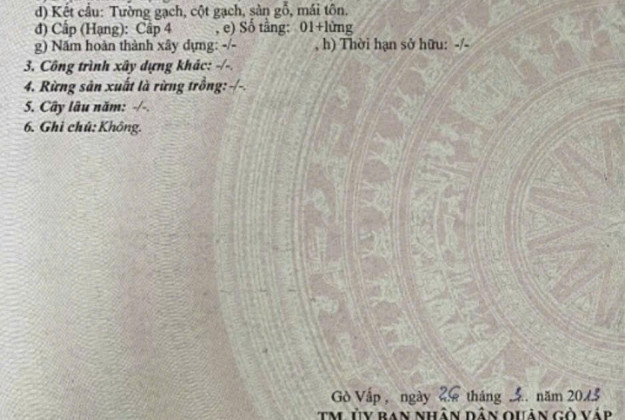 d) Kết cấu: Tường gạch, cột gạch, sàn gỗ, mái tôn.
đ) Cấp (Hạng): Cấp 4 , e) Số tầng: 01+lửng
g) Năm hoàn thành xây dựng: -/- , h) Thời hạn sở hữu: -/-
3. Công trình xây dựng khác: -/-.
4. Rừng sản xuất là rừng trồng: -/-.
5. Cây lâu năm: -/-.
6. Ghi chú: Không.
Gò Vấp , ngày 26 tháng 3.. năm 2013
TM. ỦY BAN NHÂN DÂN QUẬN GÒ VẤP